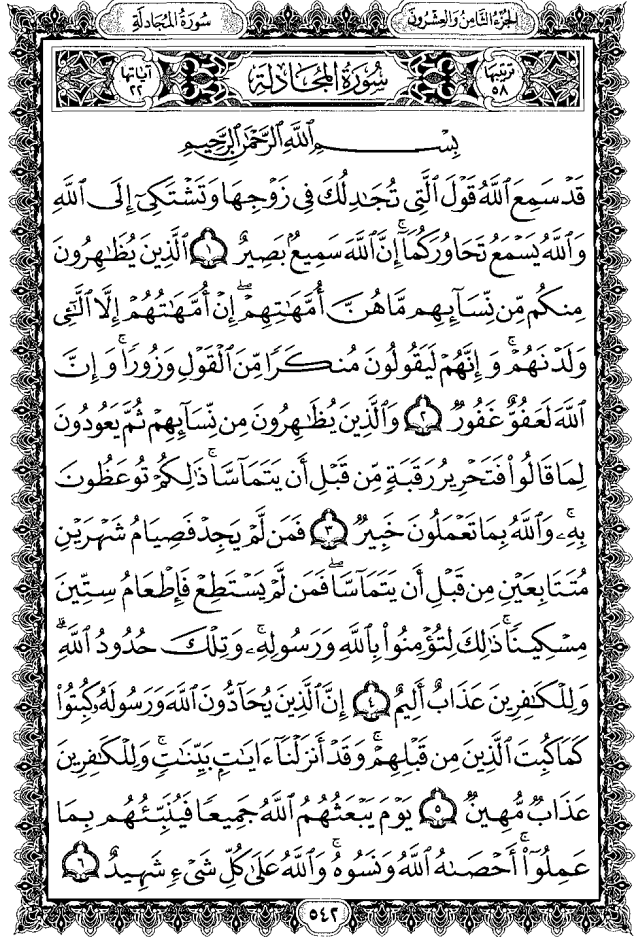 الجزء الثامن والعشرون
سورة المجادلة
ترتيبها ٥٨
سُورَةُ المُجَادلة
آياتها ٢٢
بِسْمِ اللَّهِ الرَّحْمَٰنِ الرَّحِيمِ
قَدْ سَمِعَ ٱللَّهُ قَوْلَ ٱلَّتِى تُجَٰدِلُكَ فِى زَوْجِهَا وَتَشْتَكِىٓ إِلَى ٱللَّهِ
وَٱللَّهُ يَسْمَعُ تَحَاوُرَكُمَآ ۚ إِنَّ ٱللَّهَ سَمِيعٌۢ بَصِيرٌ ١ ٱلَّذِينَ يُظَٰهِرُونَ
مِنكُم مِّن نِّسَآئِهِم مَّا هُنَّ أُمَّهَٰتِهِمْ ۖ إِنْ أُمَّهَٰتُهُمْ إِلَّا ٱلَّٰٓـِٔى
وَلَدْنَهُمْ ۚ وَإِنَّهُمْ لَيَقُولُونَ مُنكَرًا مِّنَ ٱلْقَوْلِ وَزُورًا ۚ وَإِنَّ
ٱللَّهَ لَعَفُوٌّ غَفُورٌ ٢ وَٱلَّذِينَ يُظَٰهِرُونَ مِن نِّسَآئِهِمْ ثُمَّ يَعُودُونَ
لِمَا قَالُوا۟ فَتَحْرِيرُ رَقَبَةٍ مِّن قَبْلِ أَن يَتَمَآسَّا ۚ ذَٰلِكُمْ تُوعَظُونَ
بِهِۦ ۚ وَٱللَّهُ بِمَا تَعْمَلُونَ خَبِيرٌ ٣ فَمَن لَّمْ يَجِدْ فَصِيَامُ شَهْرَيْنِ
مُتَتَابِعَيْنِ مِن قَبْلِ أَن يَتَمَآسَّا ۖ فَمَن لَّمْ يَسْتَطِعْ فَإِطْعَامُ سِتِّينَ
مِسْكِينًا ۚ ذَٰلِكَ لِتُؤْمِنُوا۟ بِٱللَّهِ وَرَسُولِهِۦ ۚ وَتِلْكَ حُدُودُ ٱللَّهِ ۗ
وَلِلْكَٰفِرِينَ عَذَابٌ أَلِيمٌ ٤ إِنَّ ٱلَّذِينَ يُحَآدُّونَ ٱللَّهَ وَرَسُولَهُۥ كُبِتُوا۟
كَمَا كُبِتَ ٱلَّذِينَ مِن قَبْلِهِمْ ۚ وَقَدْ أَنزَلْنَآ ءَايَٰتٍۭ بَيِّنَٰتٍ ۚ وَلِلْكَٰفِرِينَ
عَذَابٌ مُّهِينٌ ٥ يَوْمَ يَبْعَثُهُمُ ٱللَّهُ جَمِيعًا فَيُنَبِّئُهُم بِمَا
عَمِلُوٓا۟ ۚ أَحْصَىٰهُ ٱللَّهُ وَنَسُوهُ ۚ وَٱللَّهُ عَلَىٰ كُلِّ شَىْءٍ شَهِيدٌ ٦
٥٤٢